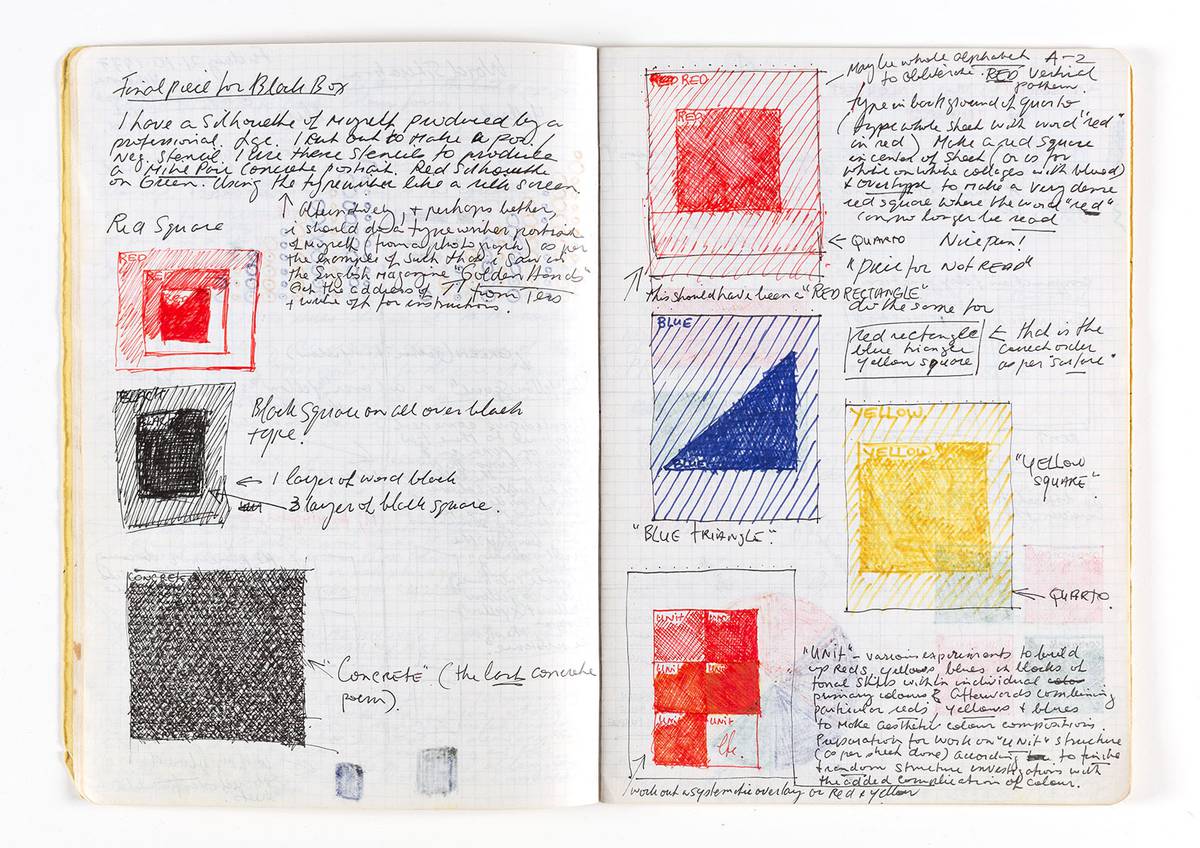 Final piece for Black Box
I have a silhouette of myself produced by a
professional. I cut out to make a pos/
neg. stencil. I use these stencils to produce
a concrete portrait. Red Silhouette
on Green. Using the typewriter like a silk screen.
↑ Alternatively, + perhaps better,
i should do a typewriter portrait
of myself (from a photograph) as per
the example of such that i saw in
the English Magazine "Golden Hands"
Get the address of from Tess
+ write off for instructions.
Red Square
RED
RED
BLACK
BLACK
Black Square on all over black
type.
← 1 layer of word black
3 layer of black square.
CONCRETE
"CONCRETE". (the last concrete
poem).
RED RED
RED
Maybe whole alphabet A-Z
to obliterate RED vertical
pattern.
type in background of quarto
(type whole sheet with word "red"
in red) Make a red square
in center of sheet, (or as for
white on white collages with blue)
+ overtype to make a very dense
red square where the word "red"
can no longer be read
← QUARTO Nice pun!
"Piece for Not READ"
this should have been a "RED RECTANGLE"
do the same for
Red rectangle
blue triangle
yellow square
← that is the
correct order
as per
BLUE
BLUE
"BLUE TRIANGLE".
YELLOW.
YELLOW
"YELLOW
SQUARE".
← QUARTO.
UNIT
UNIT
UNIT
UNIT
UNIT
"UNIT" - various experiments to build
up reds, yellows, blues in blocks of
tonal shifts within individual
primary colours & afterwards combining
particular reds, yellows + blues
to make aesthetic colour compositions.
Preparation for work on "UNIT" structure
(as per sheet done) according to finite
+ random structure investigations with
the added complication of colour.
work out a systematic overlay of Red + yellow